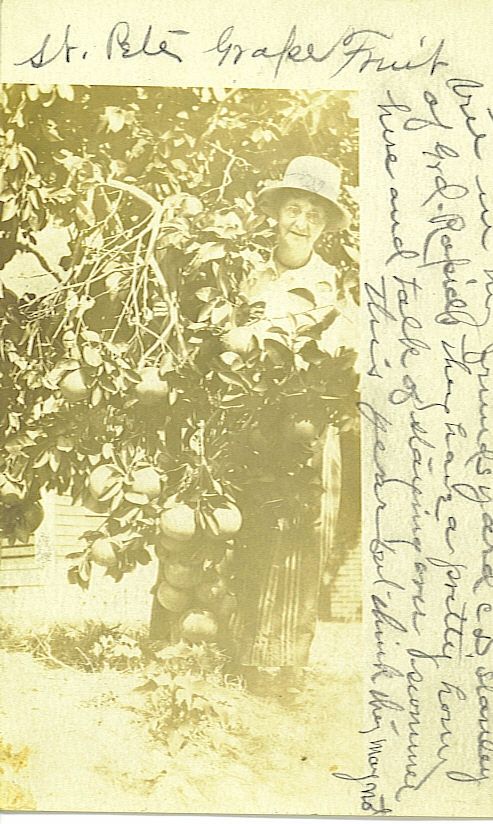 St. Pete Grape Fruit
tree in my friends yard C D Stanley
of Grd. Rapids they have a pretty home
here and talk of staying over summer
this year but think they may not